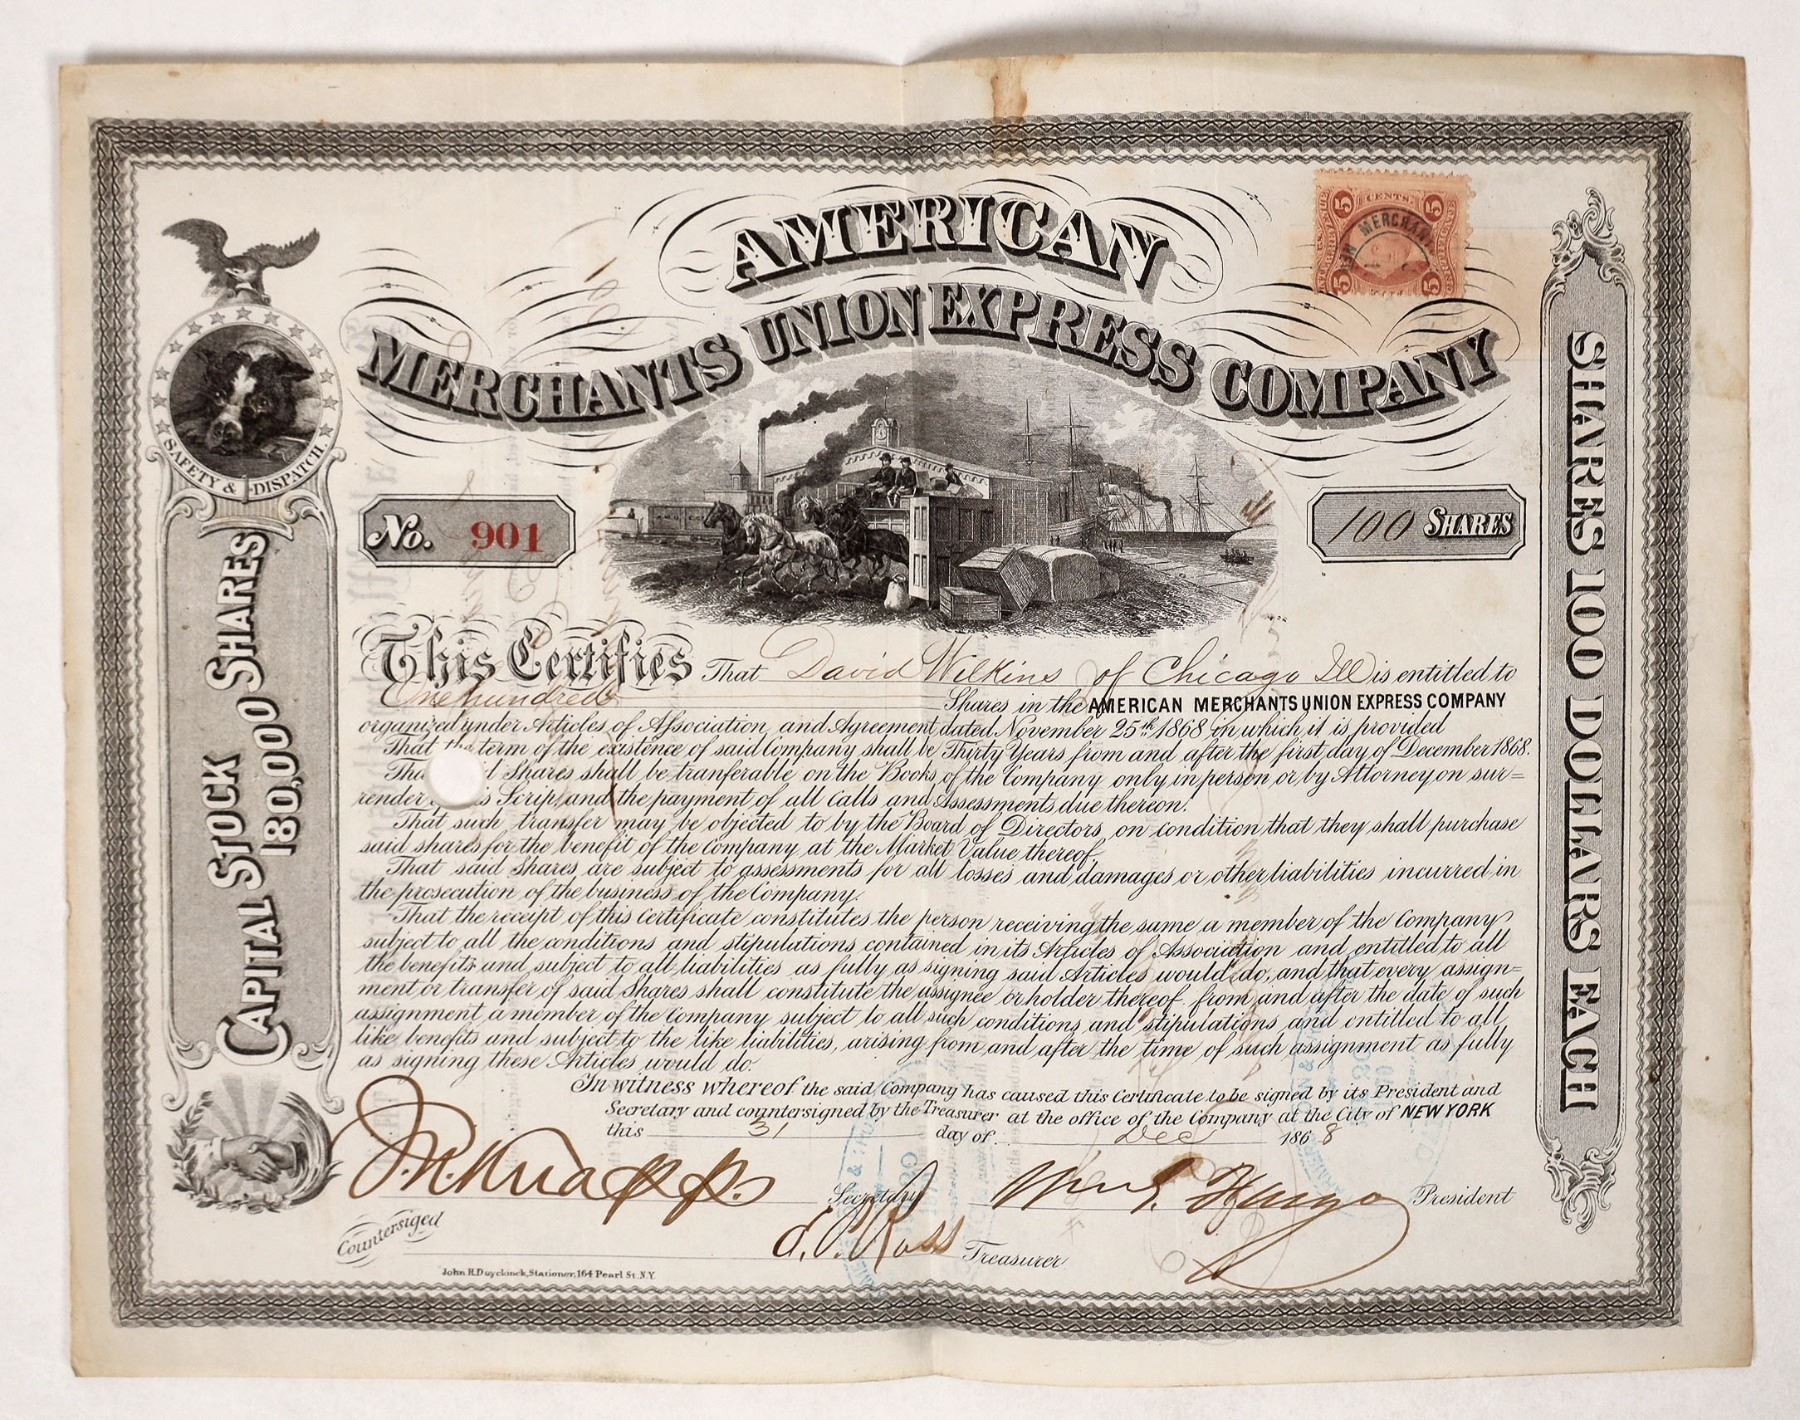 AMERICAN
MERCHANTS UNION EXPRESS COMPANY
5 CENTS. 5
MERCHAN
5 5
SAFETY & DISPATCH
CAPITAL STOCK
180,000 SHARES
No. 901
100 SHARES
SHARES 100 DOLLARS EACH
This Certifies That David Wilkins of Chicago Ill is entitled to
One hundred Shares in the AMERICAN MERCHANTS UNION EXPRESS COMPANY
organized under Articles of Association and Agreement dated November 25th 1868 in which it is provided
That the term of the existence of said Company shall be Thirty Years from and after the first day of December 1868.
Shares shall be tranferable on the Books of the Company only in person or by Attorney on sur=
render Scrip, and the payment of all Calls and Assessments due thereon.
That such transfer may be objected to by the Board of Directors, on condition that they shall purchase
said shares for the benefit of the Company at the Market Value thereof.
That said Shares are subject to assessments for all losses and damages or other liabilities incurred in
the prosecution of the business of the Company.
That the receipt of this Certificate constitutes the person receiving the same a member of the Company
subject to all the conditions and stipulations contained in its Articles of Association and entitled to all
the benefits and subject to all liabilities as fully as signing said Articles would do, and that every assign=
ment or transfer of said Shares shall constitute the assignee or holder thereof from and after the date of such
assignment, a member of the Company subject to all such conditions and stipulations and entitled to all
like benefits and subject to the like liabilities, arising from and after the time of such assignment as fully
as signing these Articles would do.
In witness whereof the said Company has caused this Certificate to be signed by its President and
Secretary and countersigned by the Treasurer at the office of the Company at the City of NEW YORK
this 31 day of Dec 1868
J. N. Knapp Secretary Wm G. Fargo President
Countersiged J. C. Ross Treasurer
John H. Duyckinck, Stationer, 164 Pearl St. N.Y.